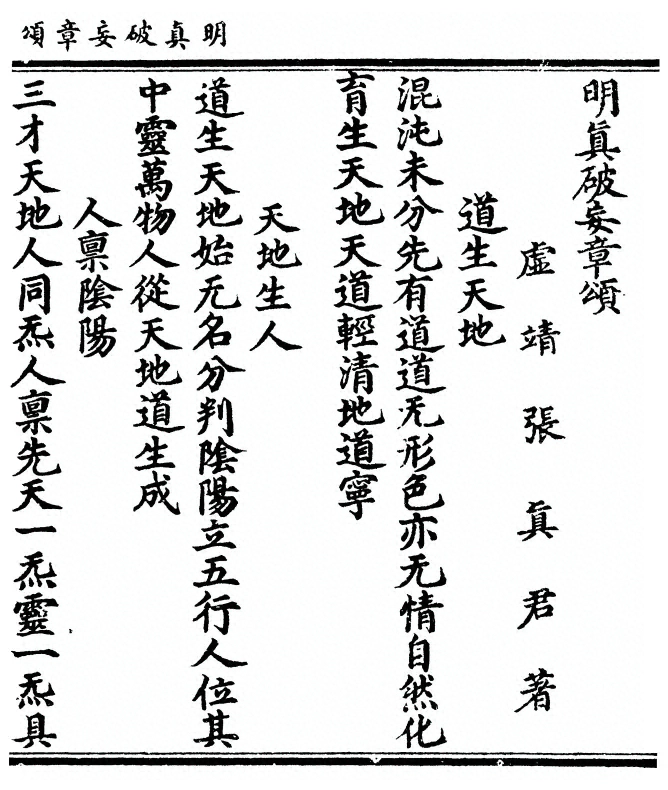 明真破妄章頌
明眞破妄章頌
虛靖張眞君著
道生天地
混沌未分先有道道无形色亦无情自然化
育生天地天道輕清地道寧
天地生人
道生天地始无名分判陰陽立五行人位其
中靈萬物人從天地道生成
人禀陰陽
三才天地人同炁人禀先天一炁靈一炁具